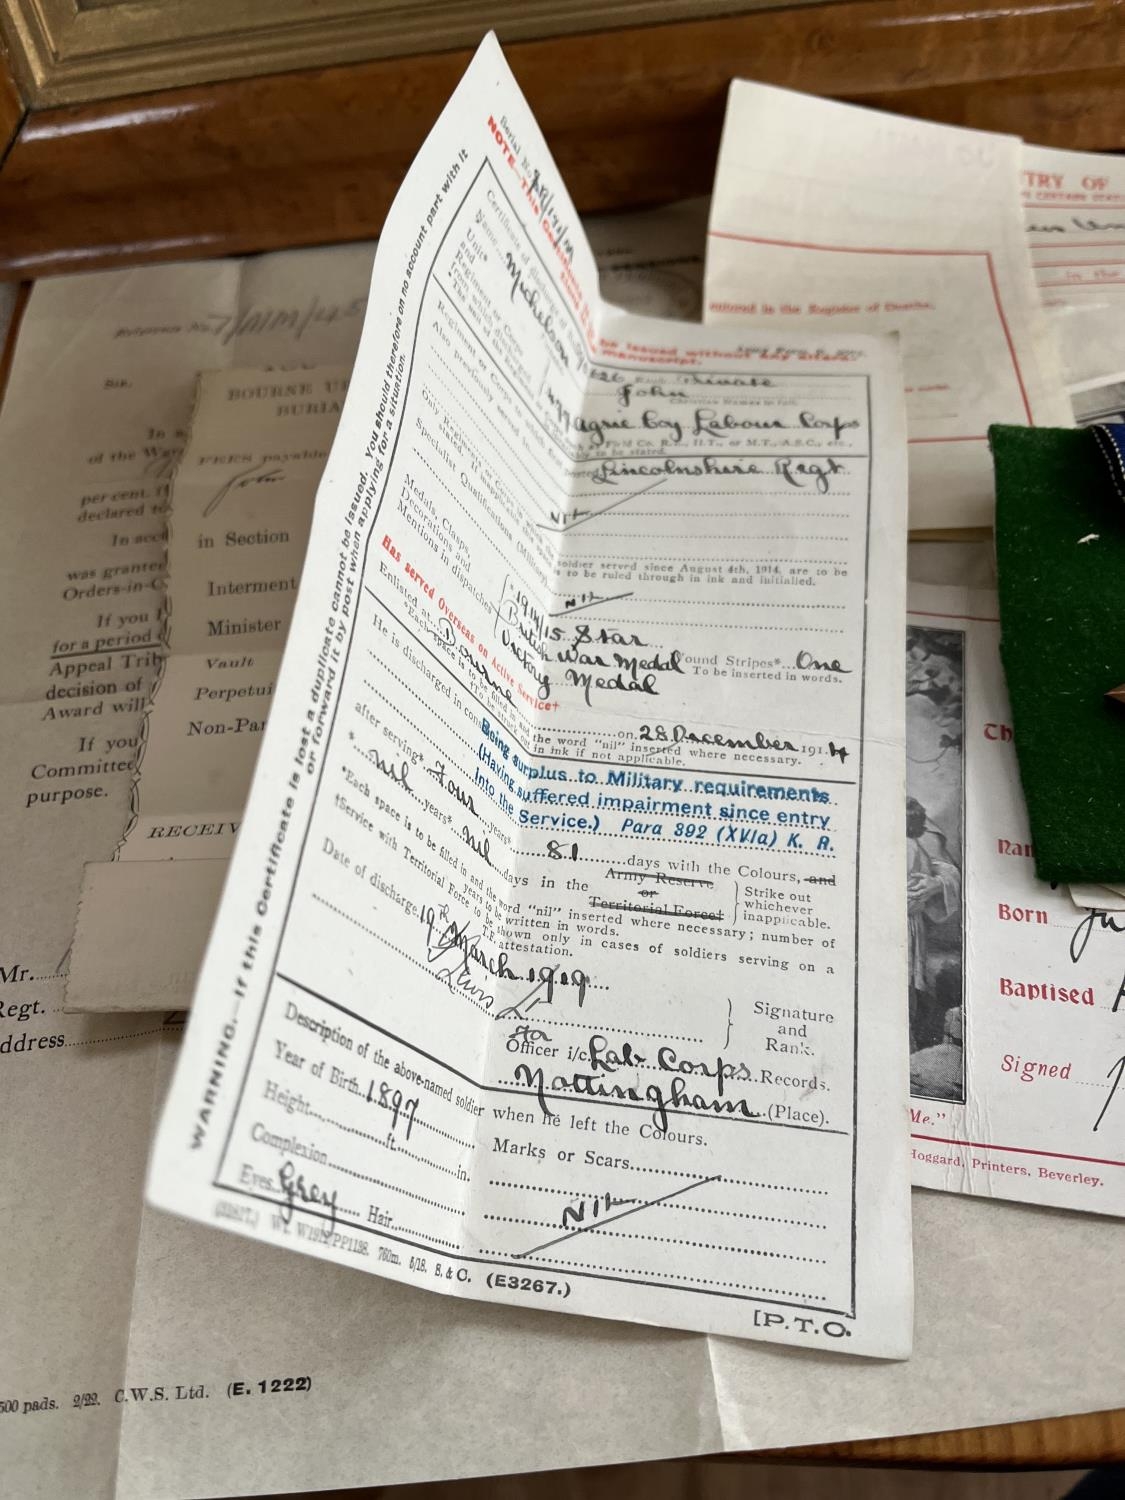 WARNING.—If this Certificate is lost a duplicate cannot be issued. You should therefore on no account part with it
or forward it by post when applying for a situation.
Serial No.
NOTE.—This Certificate
be issued without any altera-
manuscript.
Certificate of discharge of No.
626 Rank Private
Name Michelson John
Christian Names in full.
Unit*
and
Regiment or Corps
from which discharged
Agric Coy Labour Corps
Field Co. R.E., H.T., or M.T., A.S.C., etc.,
to be stated.
Regiment or Corps to which first posted Lincolnshire Regt
Also previously served in
Nil
Only Regiments or Corps in which the soldier served since August 4th, 1914, are to be
stated. If inapplicable, to be ruled through in ink and initialled.
Specialist Qualifications (Military)
Nil
Medals, Clasps,
Decorations and
Mentions in dispatches
1914/15 Star
British War Medal
Victory Medal
Wound Stripes* One
To be inserted in words.
Has served Overseas on Active Service†
Enlisted at Bourne on 28 December 1914
*Each space is to be filled in and the word "nil" inserted where necessary.
in ink if not applicable.
He is discharged in consequence of
Being surplus to Military requirements
(Having suffered impairment since entry
into the Service.) Para 392 (XVIa) K. R.
after serving* Four years* 81 days with the Colours, and
* Nil years* Nil days in the Army Reserve
or
Territorial Force†
Strike out
whichever
inapplicable.
*Each space is to be filled in and the word "nil" inserted where necessary; number of
years to be written in words.
†Service with Territorial Force to be shown only in cases of soldiers serving on a
T.F. attestation.
Date of discharge 19th March 1919
Signature
and
Rank.
for
Officer i/c Lab Corps Records.
Nottingham (Place).
Description of the above-named soldier when he left the Colours.
Year of Birth 1897
Marks or Scars
Height ft. in.
Complexion
Nil
Eyes Grey Hair
760m. 5/18. S. & C. (E3267.)
[P.T.O.
Sir,
In
of the War
per cent.
declared to
In acc
was grante
Orders-in-C
If you
for a period
Appeal Trib
decision of
Award will
If you
Committee
purpose.
Mr.
Regt.
ddress
500 pads. 2/22. C.W.S. Ltd. (E. 1222)
BOURNE U
BURIA
FEES payable
John
in Section
Interment
Minister
Vault
Perpetui
Non-Pa
RECEIV
TRY OF
in the
entered in the Register of Deaths.
Th
Nam
Born
Baptised
Signed
Me."
Hoggard, Printers, Beverley.